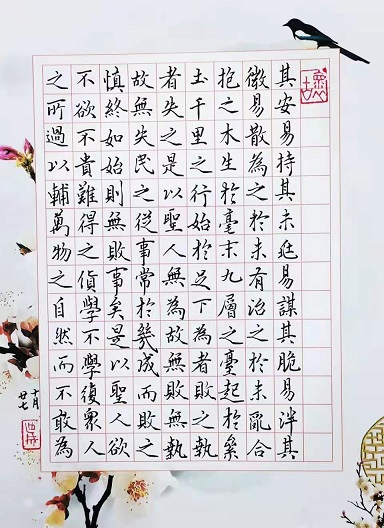 其安易持其未兆易謀其脆易泮其
微易散為之於未有治之於未亂合
抱之木生於毫末九層之臺起於絫
土千里之行始於足下為者敗之執
者失之是以聖人無為故無敗無執
故無失民之從事常於幾成而敗之
慎終如始則無敗事矣是以聖人欲
不欲不貴難得之貨學不學復衆人
之所過以輔萬物之自然而不敢為
十月
廿七